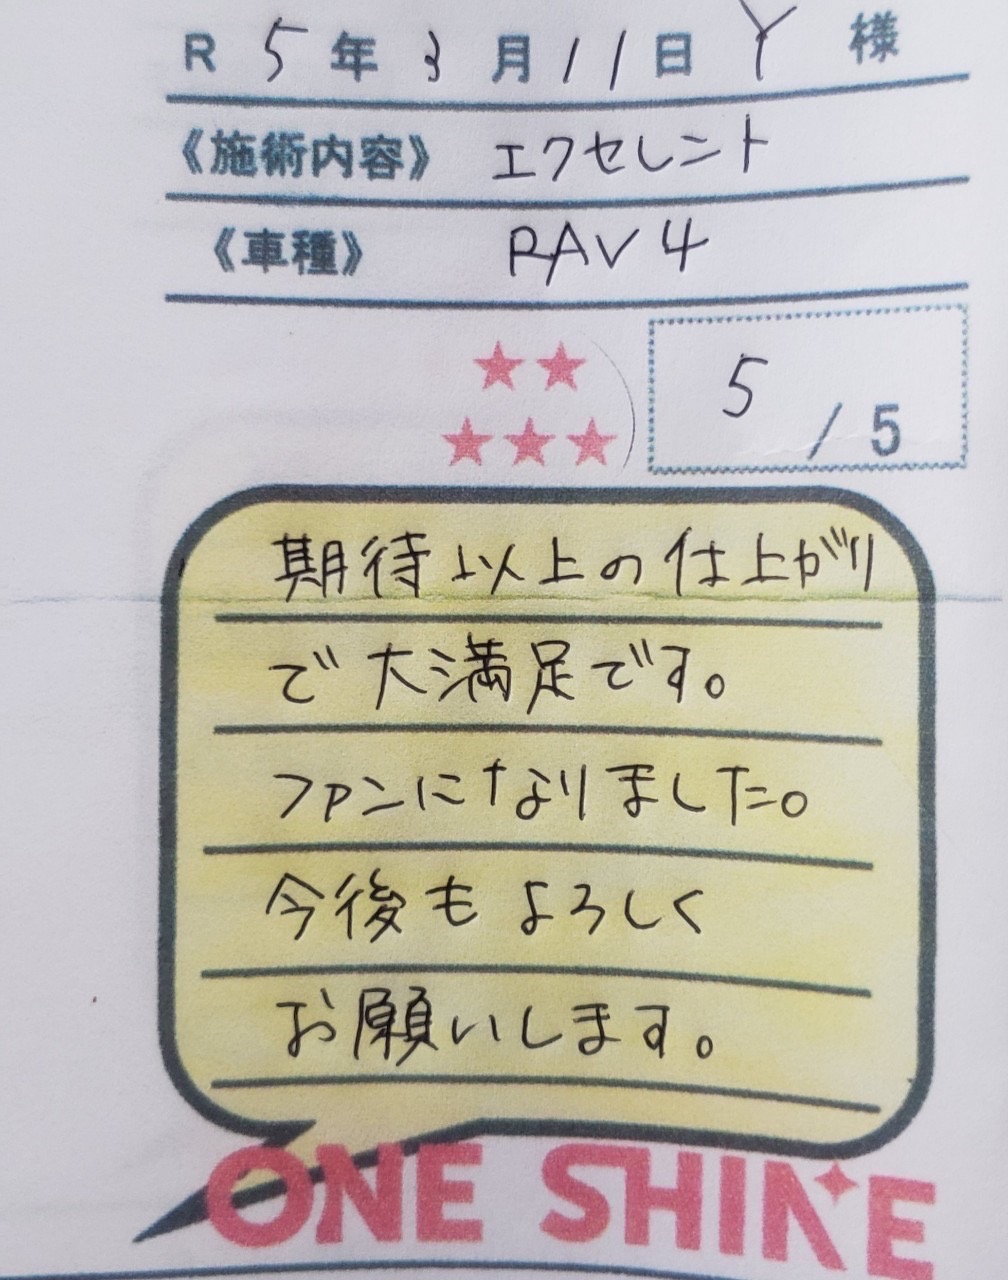 R 5年 3月 11日 Y 様
《施術内容》 エクセレント
《車種》 RAV4
★★
★★★ 5 / 5
期待以上の仕上がり
で大満足です。
ファンになりました。
今後もよろしく
お願いします。
ONE SHINE